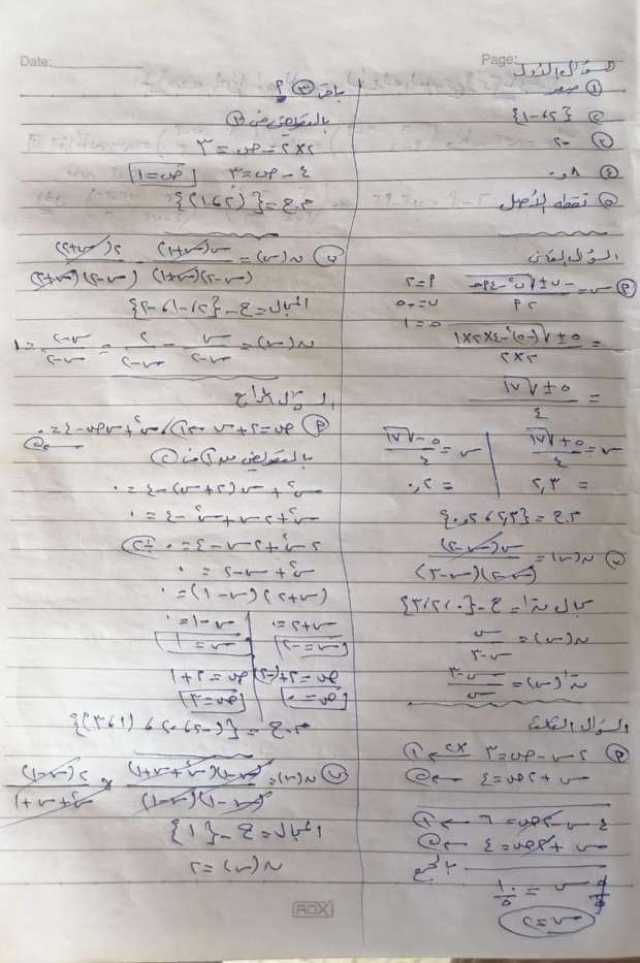 Date:
Page:
السؤال الأول
① صفر
② {٢، -١}
③ ٢٠
④ ٠,٨
⑤ نقطة الأصل
السؤال الثاني
أ) س = (-ب ± √(ب² - ٤أجـ)) / ٢أ
أ = ٢
ب = -٥
جـ = ١
= (٥ ± √((-٥)² - ٤×٢×١)) / (٢×٢)
= (٥ ± √١٧) / ٤
س = (٥ + √١٧) / ٤
س = (٥ - √١٧) / ٤
= ٢,٣
= ٠,٢
م.ح = {٢,٣، ٠,٢}
ب) ن(س) = س(س-٢) / (س-٢)(س-٣)
مجال ن⁻¹ = ح - {٠، ٢، ٣}
ن(س) = س / (س-٣)
ن⁻¹(س) = (س-٣) / س
السؤال الثالث
أ) ٢س - ص = ٣ ×٢ ← ①
س + ٢ص = ٤ ← ②
٤س - ٢ص = ٦ ← ①
س + ٢ص = ٤ ← ②
بالجمع
٥س/٥ = ١٠/٥
س = ٢
باقى ③ أ
بالتعويض فى ①
٢×٢ - ص = ٣
٤ - ص = ٣ ص = ١
م.ح = {(٢، ١)}
ب) ن(س) = س(س+١) / (س-٢)(س+١) - ٢(س+٢) / (س-٢)(س+٢)
المجال = ح - {٢، -١، -٢}
ن(س) = س/(س-٢) - ٢/(س-٢) = (س-٢)/(س-٢) = ١
السؤال الرابع
أ) ص = ٢ + س ← ①، س² + س ص - ٤ = ٠ ← ②
بالتعويض من ① فى ②
س² + س(٢+س) - ٤ = ٠
س² + ٢س + س² - ٤ = ٠
٢س² + ٢س - ٤ = ٠ ÷٢
س² + س - ٢ = ٠
(س+٢)(س-١) = ٠
س+٢ = ٠
س-١ = ٠
س = -٢
س = ١
ص = ٢+(-٢)
ص = ٢+١
ص = ٠
ص = ٣
م.ح = {(-٢، ٠)، (١، ٣)}
ب) ن(س) = (س-١)(س²+س+١) / (س-١)(س-١) × ٢(س-١) / (س²+س+١)
المجال = ح - {١}
ن(س) = ٢
ROX